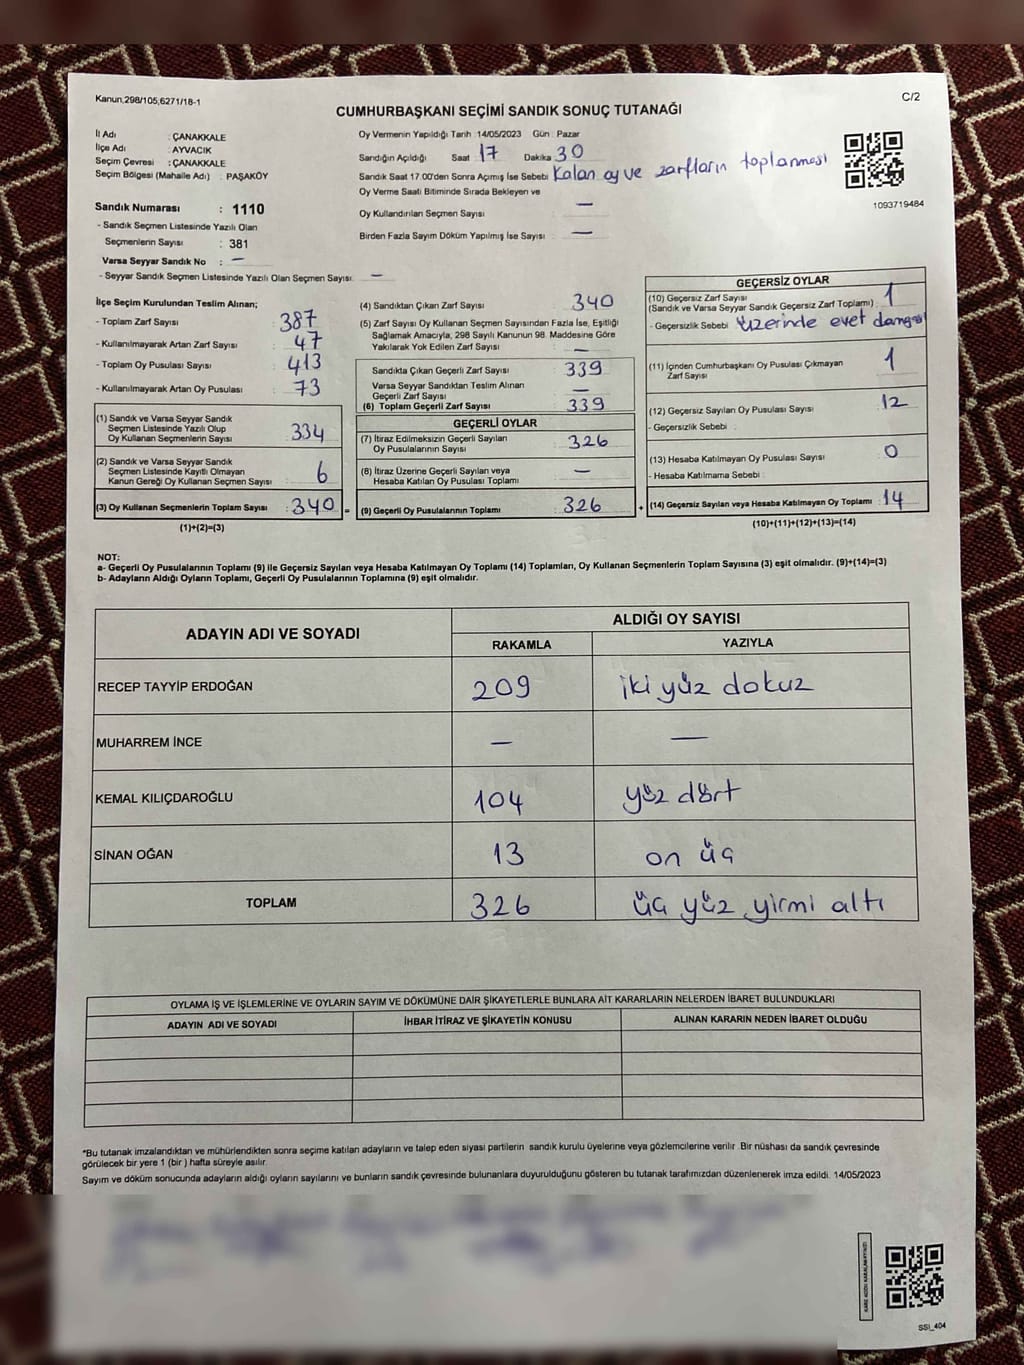 Kanun;298/105,6271/18-1
C/2
CUMHURBAŞKANI SEÇİMİ SANDIK SONUÇ TUTANAĞI
İl Adı : ÇANAKKALE
İlçe Adı : AYVACIK
Seçim Çevresi : ÇANAKKALE
Seçim Bölgesi (Mahalle Adı) : PAŞAKÖY
Sandık Numarası : 1110
- Sandık Seçmen Listesinde Yazılı Olan
Seçmenlerin Sayısı : 381
Varsa Seyyar Sandık No : —
- Seyyar Sandık Seçmen Listesinde Yazılı Olan Seçmen Sayısı: —
Oy Vermenin Yapıldığı Tarih : 14/05/2023 Gün : Pazar
Sandığın Açıldığı Saat 17 Dakika 30
Sandık Saat 17.00'den Sonra Açımış İse Sebebi Kalan oy ve zarfların toplanması
Oy Verme Saati Bitiminde Sırada Bekleyen ve
Oy Kullandırılan Seçmen Sayısı —
Birden Fazla Sayım Döküm Yapılmış İse Sayısı : —
1093719484
İlçe Seçim Kurulundan Teslim Alınan;
- Toplam Zarf Sayısı : 387
- Kullanılmayarak Artan Zarf Sayısı : 47
- Toplam Oy Pusulası Sayısı : 413
- Kullanılmayarak Artan Oy Pusulası : 73
(1) Sandık ve Varsa Seyyar Sandık
Seçmen Listesinde Yazılı Olup
Oy Kullanan Seçmenlerin Sayısı : 334
(2) Sandık ve Varsa Seyyar Sandık
Seçmen Listesinde Kayıtlı Olmayan
Kanun Gereği Oy Kullanan Seçmen Sayısı : 6
(3) Oy Kullanan Seçmenlerin Toplam Sayısı : 340 =
(1)+(2)=(3)
(4) Sandıktan Çıkan Zarf Sayısı 340
(5) Zarf Sayısı Oy Kullanan Seçmen Sayısından Fazla İse, Eşitliği
Sağlamak Amacıyla, 298 Sayılı Kanunun 98. Maddesine Göre
Yakılarak Yok Edilen Zarf Sayısı : —
Sandıkta Çıkan Geçerli Zarf Sayısı : 339
Varsa Seyyar Sandıktan Teslim Alınan
Geçerli Zarf Sayısı : —
(6) Toplam Geçerli Zarf Sayısı : 339
GEÇERLİ OYLAR
(7) İtiraz Edilmeksizin Geçerli Sayılan
Oy Pusulalarının Sayısı : 326
(8) İtiraz Üzerine Geçerli Sayılan veya
Hesaba Katılan Oy Pusulası Toplamı : —
(9) Geçerli Oy Pusulalarının Toplamı : 326 +
GEÇERSİZ OYLAR
(10) Geçersiz Zarf Sayısı
(Sandık ve Varsa Seyyar Sandık Geçersiz Zarf Toplamı) : 1
- Geçersizlik Sebebi : Üzerinde evet damgası
(11) İçinden Cumhurbaşkanı Oy Pusulası Çıkmayan
Zarf Sayısı : 1
(12) Geçersiz Sayılan Oy Pusulası Sayısı : 12
- Geçersizlik Sebebi :
(13) Hesaba Katılmayan Oy Pusulası Sayısı : 0
- Hesaba Katılmama Sebebi :
(14) Geçersiz Sayılan veya Hesaba Katılmayan Oy Toplamı : 14
(10)+(11)+(12)+(13)=(14)
NOT:
a- Geçerli Oy Pusulalarının Toplamı (9) ile Geçersiz Sayılan veya Hesaba Katılmayan Oy Toplamı (14) Toplamları, Oy Kullanan Seçmenlerin Toplam Sayısına (3) eşit olmalıdır. (9)+(14)=(3)
b- Adayların Aldığı Oyların Toplamı, Geçerli Oy Pusulalarının Toplamına (9) eşit olmalıdır.
ADAYIN ADI VE SOYADI ALDIĞI OY SAYISI
RAKAMLA YAZIYLA
RECEP TAYYİP ERDOĞAN 209 iki yüz dokuz
MUHARREM İNCE — —
KEMAL KILIÇDAROĞLU 104 yüz dört
SİNAN OĞAN 13 on üç
TOPLAM 326 üç yüz yirmi altı
OYLAMA İŞ VE İŞLEMLERİNE VE OYLARIN SAYIM VE DÖKÜMÜNE DAİR ŞİKAYETLERLE BUNLARA AİT KARARLARIN NELERDEN İBARET BULUNDUKLARI
ADAYIN ADI VE SOYADI İHBAR İTİRAZ VE ŞİKAYETİN KONUSU ALINAN KARARIN NEDEN İBARET OLDUĞU
*Bu tutanak imzalandıktan ve mühürlendikten sonra seçime katılan adayların ve talep eden siyasi partilerin sandık kurulu üyelerine veya gözlemcilerine verilir. Bir nüshası da sandık çevresinde
görülecek bir yere 1 (bir ) hafta süreyle asılır.
Sayım ve döküm sonucunda adayların aldığı oyların sayılarını ve bunların sandık çevresinde bulunanlara duyurulduğunu gösteren bu tutanak tarafımızdan düzenlenerek imza edildi. 14/05/2023
SSİ_404